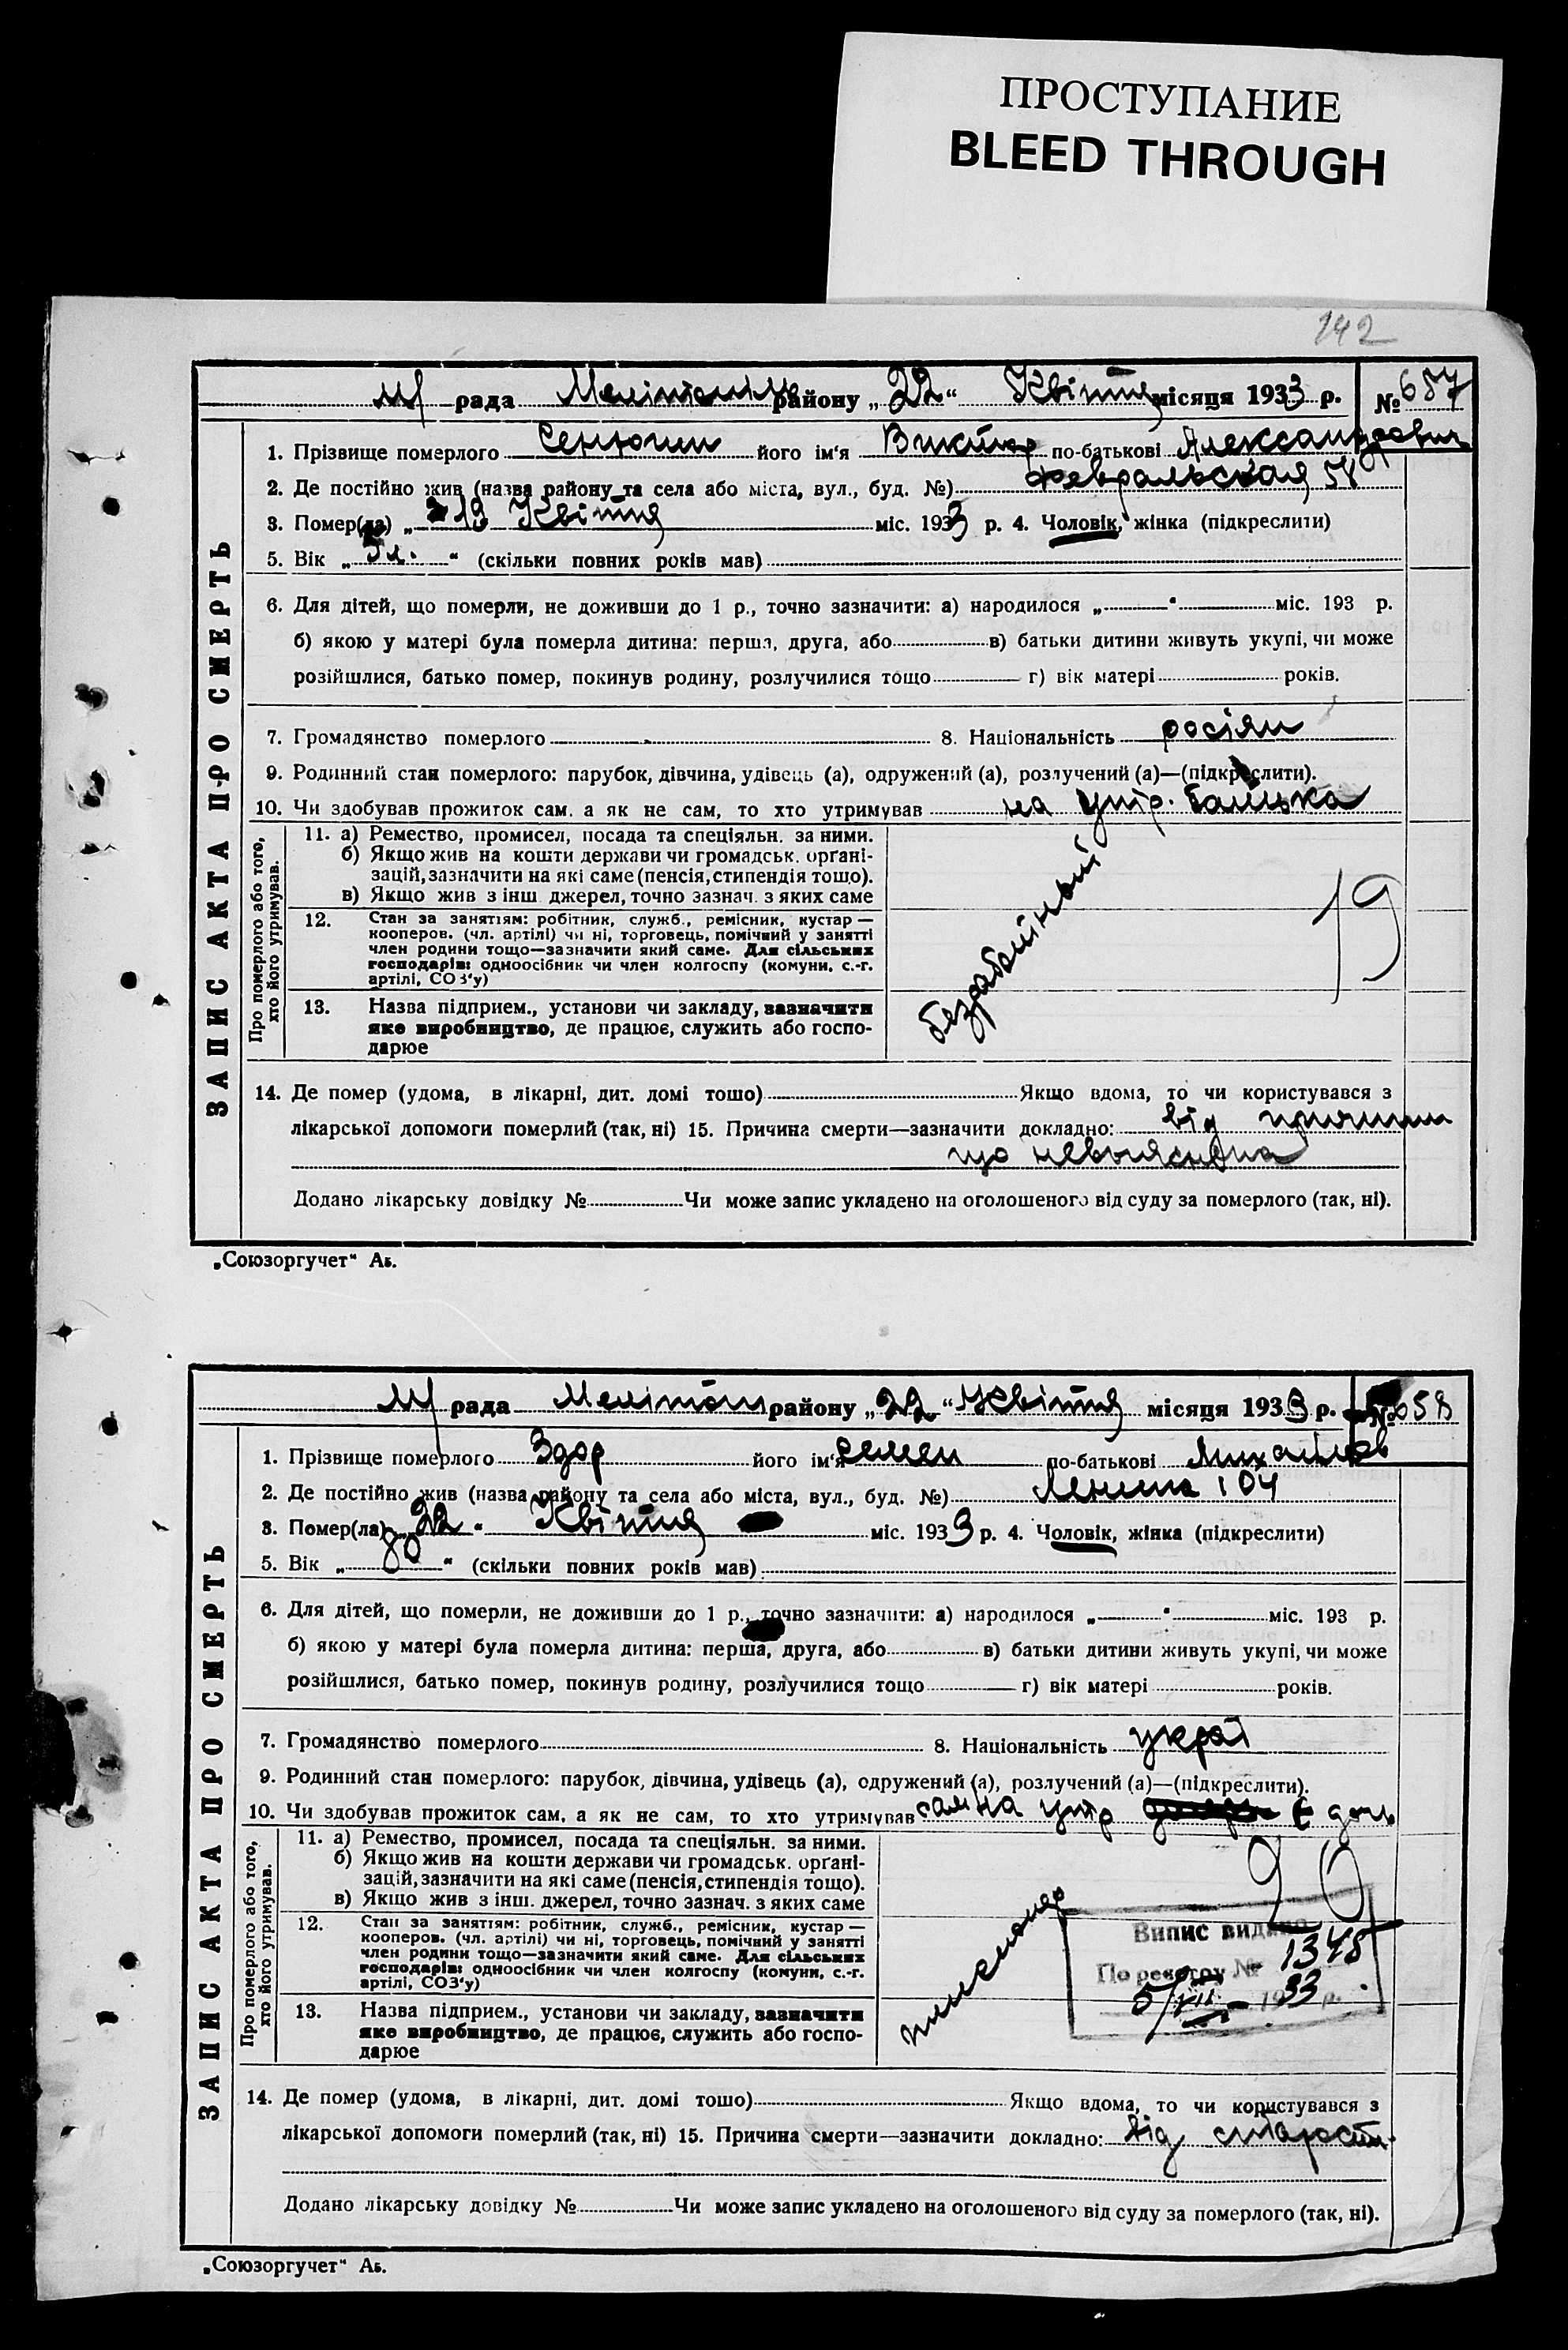 ПРОСТУПАНИЕ
BLEED THROUGH
142
рада Мелітопіль району „22“ Квітня місяця 1933 р. № 657
1. Прізвище померлого його ім‘я Виктор по-батькові Александрович
2. Де постійно жив (назва району та села або міста, вул., буд. №) Февральская
3. Помер(ла) „19 Квітня міс. 1933 р. 4. Чоловік, жінка (підкреслити)
5. Вік „ “ (скільки повних років мав)
6. Для дітей, що померли, не доживши до 1 р., точно зазначити: а) народилося „ “ міс. 193 р.
б) якою у матері була померла дитина: перша, друга, або в) батьки дитини живуть укупі, чи може
розійшлися, батько помер, покинув родину, розлучилися тощо г) вік матері років.
7. Громадянство померлого 8. Національність росіян
9. Родинний стан померлого: парубок, дівчина, удівець (а), одружений (а), розлучений (а)—(підкреслити).
10. Чи здобував прожиток сам, а як не сам, то хто утримував на утр. батька
ЗАПИС АКТА ПРО СМЕРТЬ
Про померлого або того,
хто його утримував.
11. а) Ремество, промисел, посада та спеціяльн. за ними.
б) Якщо жив на кошти держави чи громадськ. орґані-
зацій, зазначити на які саме (пенсія, стипендія тощо).
в) Якщо жив з інш. джерел, точно зазнач. з яких саме
12. Стан за заняттям: робітник, служб., ремісник, кустар —
кооперов. (чл. артілі) чи ні, торговець, помічний у занятті
член родини тощо—зазначити який саме. Для сільських
господарів: одноосібник чи член колгоспу (комуни, с.-г.
артілі, СОЗ‘у)
13. Назва підприєм., установи чи закладу, зазначити
яке виробництво, де працює, служить або госпо-
дарює
безработный
19
14. Де помер (удома, в лікарні, дит. домі тошо) Якщо вдома, то чи користувався з
лікарської допомоги померлий (так, ні) 15. Причина смерти—зазначити докладно: від причини
що невыяснена
Додано лікарську довідку № Чи може запис укладено на оголошеного від суду за померлого (так, ні).
„Союзоргучет“ Аь.
рада Мелітоп району „22“ Квітня місяця 1933 р. № 658
1. Прізвище померлого Здор його ім‘я Семен по-батькові Михайлов
2. Де постійно жив (назва району та села або міста, вул., буд. №) Ленина 104
3. Помер(ла) „22“ Квітня міс. 1933 р. 4. Чоловік, жінка (підкреслити)
5. Вік „80“ (скільки повних років мав)
6. Для дітей, що померли, не доживши до 1 р., точно зазначити: а) народилося „ “ міс. 193 р.
б) якою у матері була померла дитина: перша, друга, або в) батьки дитини живуть укупі, чи може
розійшлися, батько помер, покинув родину, розлучилися тощо г) вік матері років.
7. Громадянство померлого 8. Національність украї
9. Родинний стан померлого: парубок, дівчина, удівець (а), одружений (а), розлучений (а)—(підкреслити).
10. Чи здобував прожиток сам, а як не сам, то хто утримував на утр дочь
ЗАПИС АКТА ПРО СМЕРТЬ
Про померлого або того,
хто його утримував.
11. а) Ремество, промисел, посада та спеціяльн. за ними.
б) Якщо жив на кошти держави чи громадськ. орґані-
зацій, зазначити на які саме (пенсія, стипендія тощо).
в) Якщо жив з інш. джерел, точно зазнач. з яких саме
12. Стан за заняттям: робітник, служб., ремісник, кустар —
кооперов. (чл. артілі) чи ні, торговець, помічний у занятті
член родини тощо—зазначити який саме. Для сільських
господарів: одноосібник чи член колгоспу (комуни, с.-г.
артілі, СОЗ‘у)
13. Назва підприєм., установи чи закладу, зазначити
яке виробництво, де працює, служить або госпо-
дарює
Випис видано
По реєстру № 1348
5/VII 1933 р.
14. Де помер (удома, в лікарні, дит. домі тошо) Якщо вдома, то чи користувався з
лікарської допомоги померлий (так, ні) 15. Причина смерти—зазначити докладно: від старости
Додано лікарську довідку № Чи може запис укладено на оголошеного від суду за померлого (так, ні).
„Союзоргучет“ Аь.